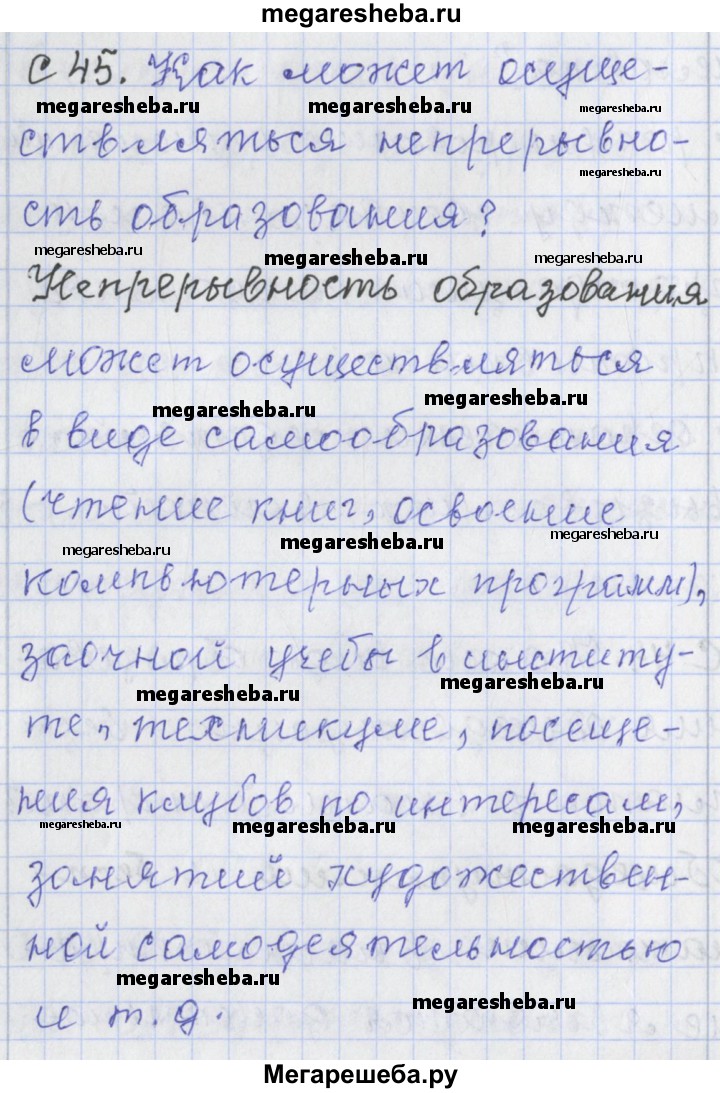 megaresheba.ru
С 45. Как может осуще-
megaresheba.ru megaresheba.ru megaresheba.ru
ствляться непрерывно-
megaresheba.ru
сть образования?
megaresheba.ru megaresheba.ru megaresheba.ru
Непрерывность образования
может осуществляться
megaresheba.ru megaresheba.ru
в виде самообразования
(чтение книг, освоение
megaresheba.ru megaresheba.ru megaresheba.ru
компьютерных программ),
заочной учебы в институ-
megaresheba.ru megaresheba.ru
те, техникуме, посеще-
ния клубов по интересам,
megaresheba.ru megaresheba.ru megaresheba.ru
занятий художествен-
ной самодеятельностью
megaresheba.ru megaresheba.ru
и т.д.
Мегарешеба.ру